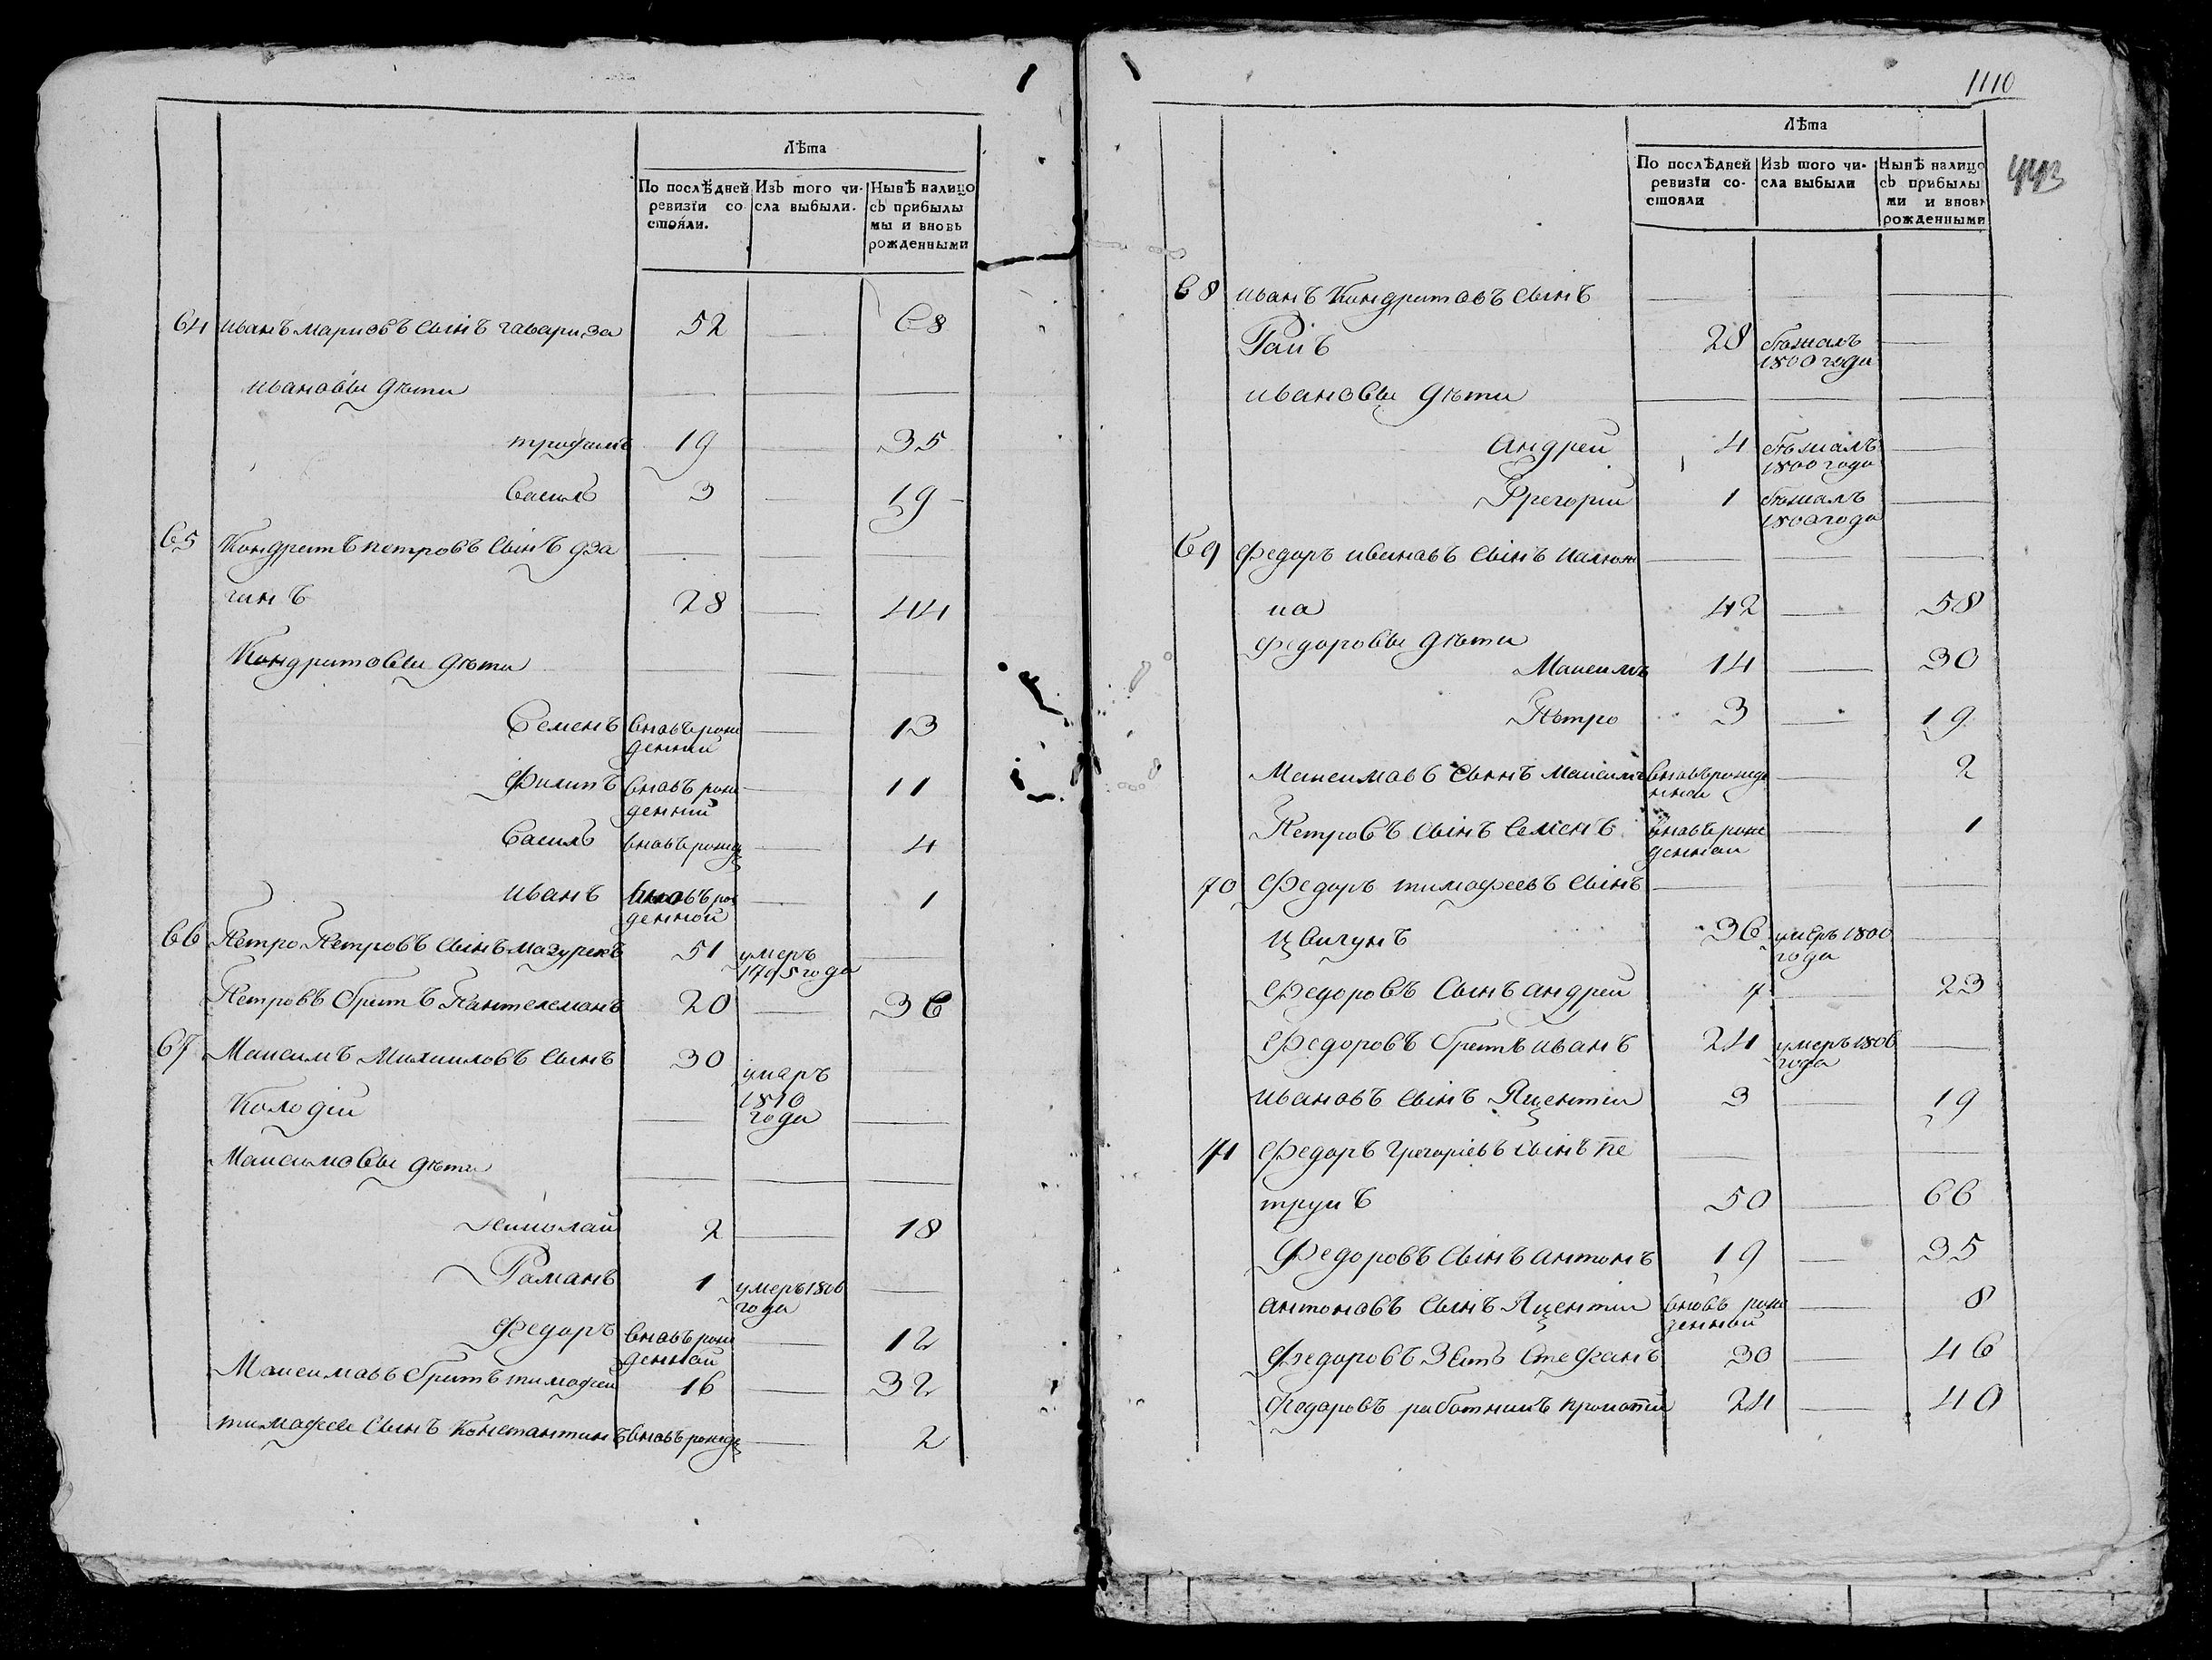 Лѣта
По послѣдней ревизїи со-стояли.
Изъ того чи-сла выбыли.
Нынѣ налицо съ прибылымы и вновь рожденными
64 иванъ марковъ сынъ 52 — 68
ивановы дѣти — — —
трофимъ 19 — 35
василь 3 — 19
65 Кондратъ петровъ сынъ дза — — —
чинъ 28 — 44
Кондратовы дѣти — — —
Семенъ вновъ рож 13
денний
Филипъ вновъ рож 11
денний
Василь вновърожд 4
иванъ вновъ рож 1
денной
66 Петро Петровъ сынъ мазурекъ 51 умеръ —
1795 года
Петровъ братъ Пантелемонъ 20 — 36
67 Максимъ Михаиловъ сынъ 30 умаръ —
Колодiй — 1810 —
года
Максимовы дѣти — — —
Николай 2 — 18
Раманъ 1 умеръ 1806 —
года
Федоръ вновъ рож — 12
денной
Максимовъ братъ тимофей 16 — 32
тимофеевъ сынъ Константинъ вновърожд — 2
1110
Лѣта
По послѣдней ревизїи со-стояли
Изъ того чи-сла выбыли
Нынѣ налицо съ прибылыми и вновь рожденными
443
68 иванъ Кондратовъ сынъ — — —
Гайъ 28 бѣжалъ —
1800 года
ивановы дѣти — — —
андрей 4 бѣжалъ —
1800 года
Грегорий 1 бѣжалъ —
1800 года
69 Федоръ ивановъ сынъ — — —
ка 42 — 58
Федоровы дѣти
Максимъ 14 — 30
Пѣтро 3 — 19
Максимовъ сынъ Максимъ вновърожде — 2
нной
Петровъ сынъ семенъ вновърож — 1
денной
70 Федоръ тимофеевъ сынъ — — —
Цвигунъ 36 умеръ 1800 —
года
Федоровъ сынъ андрей 7 — 23
Федоровъ братъ иванъ 24 умеръ 1806 —
года
ивановъ сынъ Яцентiй 3 — 19
71 Федоръ грегорiевъ сынъ пе — — —
трукъ 50 — 66
Федоровъ сынъ антонъ 19 — 35
антоновъ сынъ Яцентiй вновъ рож — 8
денной
Федоровъ зять Стефанъ 30 — 46
Федоровъ работникъ прокопiй 24 — 40